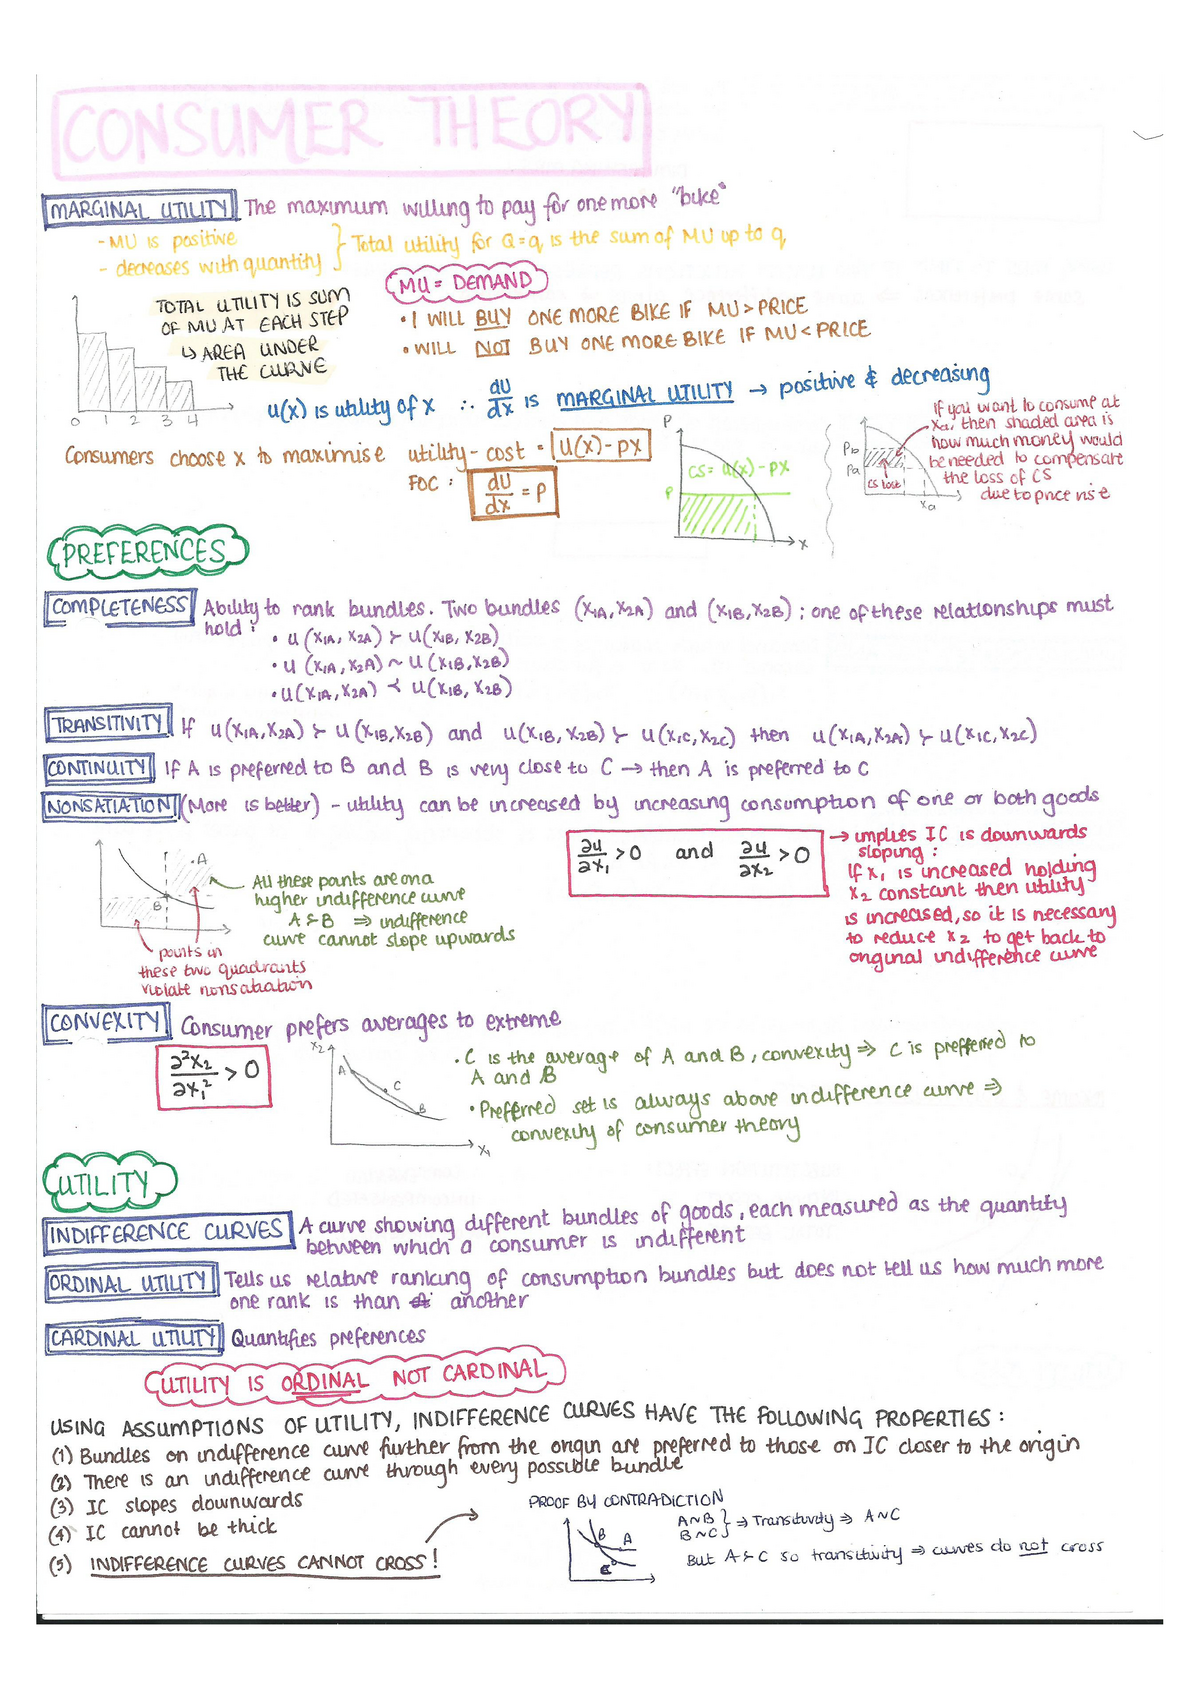 CONSUMER THEORY
MARGINAL UTILITY The maximum willing to pay for one more "bike"
- MU is positive
- decreases with quantity
} Total utility for Q=q, is the sum of MU up to q,
TOTAL UTILITY IS SUM
OF MU AT EACH STEP
↳ AREA UNDER
THE CURVE
MU = DEMAND
• I WILL BUY ONE MORE BIKE IF MU > PRICE
• WILL NOT BUY ONE MORE BIKE IF MU < PRICE
0 1 2 3 4
u(x) is utility of x ∴ du/dx is MARGINAL UTILITY → positive & decreasing
Consumers choose x to maximise utility - cost = u(x) - px
FOC : du/dx = P
P
CS = u(x) - px
P
x
Pb
Pa
CS lost
xa
If you want to consume at
xa, then shaded area is
how much money would
be needed to compensate
the loss of CS
due to price rise
PREFERENCES
COMPLETENESS Ability to rank bundles. Two bundles (x1A, x2A) and (x1B, x2B) ; one of these relationships must
hold :
• u (x1A, x2A) ≻ u(x1B, x2B)
• u (x1A, x2A) ~ u (x1B, x2B)
• u(x1A, x2A) ≺ u(x1B, x2B)
TRANSITIVITY If u(x1A, x2A) ≻ u (x1B, x2B) and u(x1B, x2B) ≻ u(x1C, x2C) then u(x1A, x2A) ≻ u(x1C, x2C)
CONTINUITY If A is preferred to B and B is very close to C → then A is preferred to C
NONSATIATION (More is better) - utility can be increased by increasing consumption of one or both goods
∂u/∂x1 > 0 and ∂u/∂x2 > 0
→ implies IC is downwards
sloping :
If x1 is increased holding
x2 constant then utility
is increased, so it is necessary
to reduce x2 to get back to
original indifference curve
A
B
All these points are on a
higher indifference curve
A ≻ B ⇒ indifference
curve cannot slope upwards
points in
these two quadrants
violate nonsatiation
CONVEXITY Consumer prefers averages to extreme
∂²x2/∂x1² > 0
x2
A
C
B
x1
• C is the average of A and B, convexity ⇒ C is prefferred to
A and B
• Preferred set is always above indifference curve ⇒
convexity of consumer theory
UTILITY
INDIFFERENCE CURVES A curve showing different bundles of goods, each measured as the quantity
between which a consumer is indifferent
ORDINAL UTILITY Tells us relative ranking of consumption bundles but does not tell us how much more
one rank is than another
CARDINAL UTILITY Quantifies preferences
UTILITY IS ORDINAL NOT CARDINAL
USING ASSUMPTIONS OF UTILITY, INDIFFERENCE CURVES HAVE THE FOLLOWING PROPERTIES :
(1) Bundles on indifference curve further from the origin are preferred to those on IC closer to the origin
(2) There is an indifference curve through every possible bundle
(3) IC slopes downwards
(4) IC cannot be thick
(5) INDIFFERENCE CURVES CANNOT CROSS !
PROOF BY CONTRADICTION
B
A
C
A~B
B~C
} ⇒ Transitivity ⇒ A~C
But A ≻ C so transitivity ⇒ curves do not cross